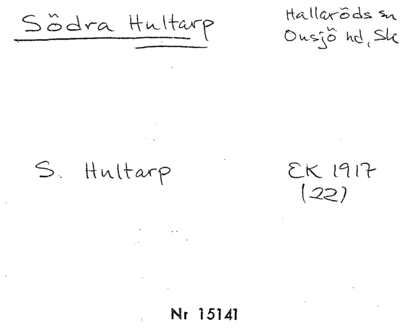 Södra Hultarp
Hallaröds sn
Onsjö hd, Sk
S. Hultarp
EK 1917
(22)
Nr 15141